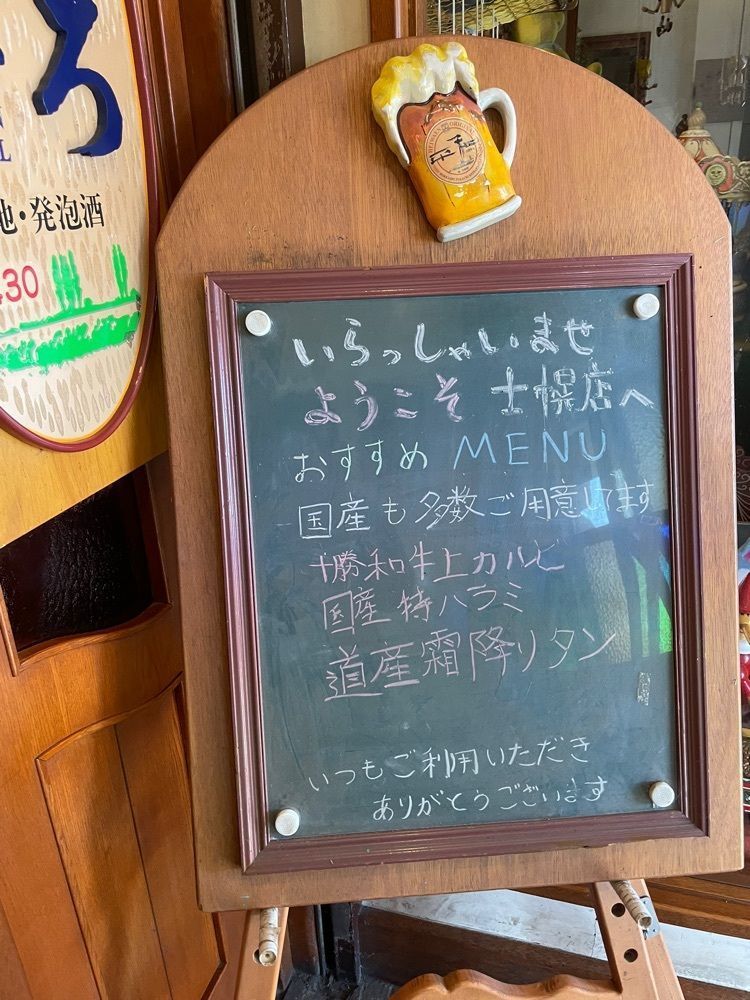 ろ
地・発泡酒
30
いらっしゃいませ
ようこそ 士幌店へ
おすすめ MENU
国産も多数ご用意してます
十勝和牛上カルビ
国産特ハラミ
道産霜降りタン
いつもご利用いただき
ありがとうございます